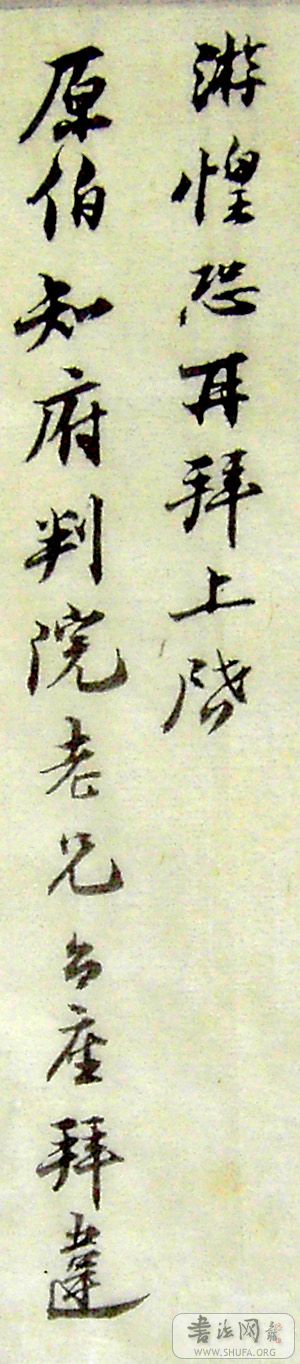 游惶恐再拜上啓
原伯知府判院老兄台座拜違
書法网
WWW.SHUFA.ORG